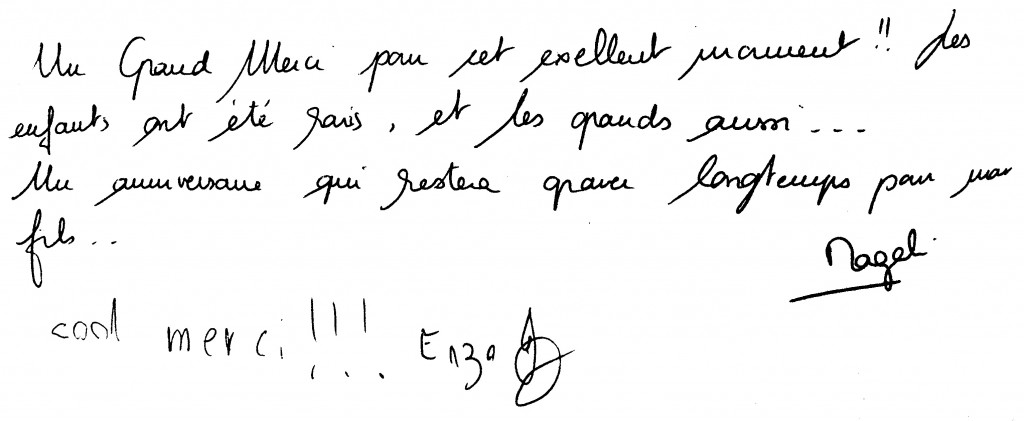 Un Grand Merci pour cet exellent moment !! Les
enfants ont été ravis, et les grands aussi ...
Un anniversaire qui restera graver longtemps pour mon
fils ..
Magali
cool merci !!! Enzo